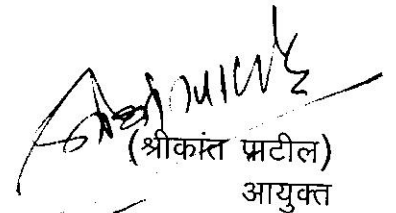 (श्रीकांत पाटील)
आयुक्त